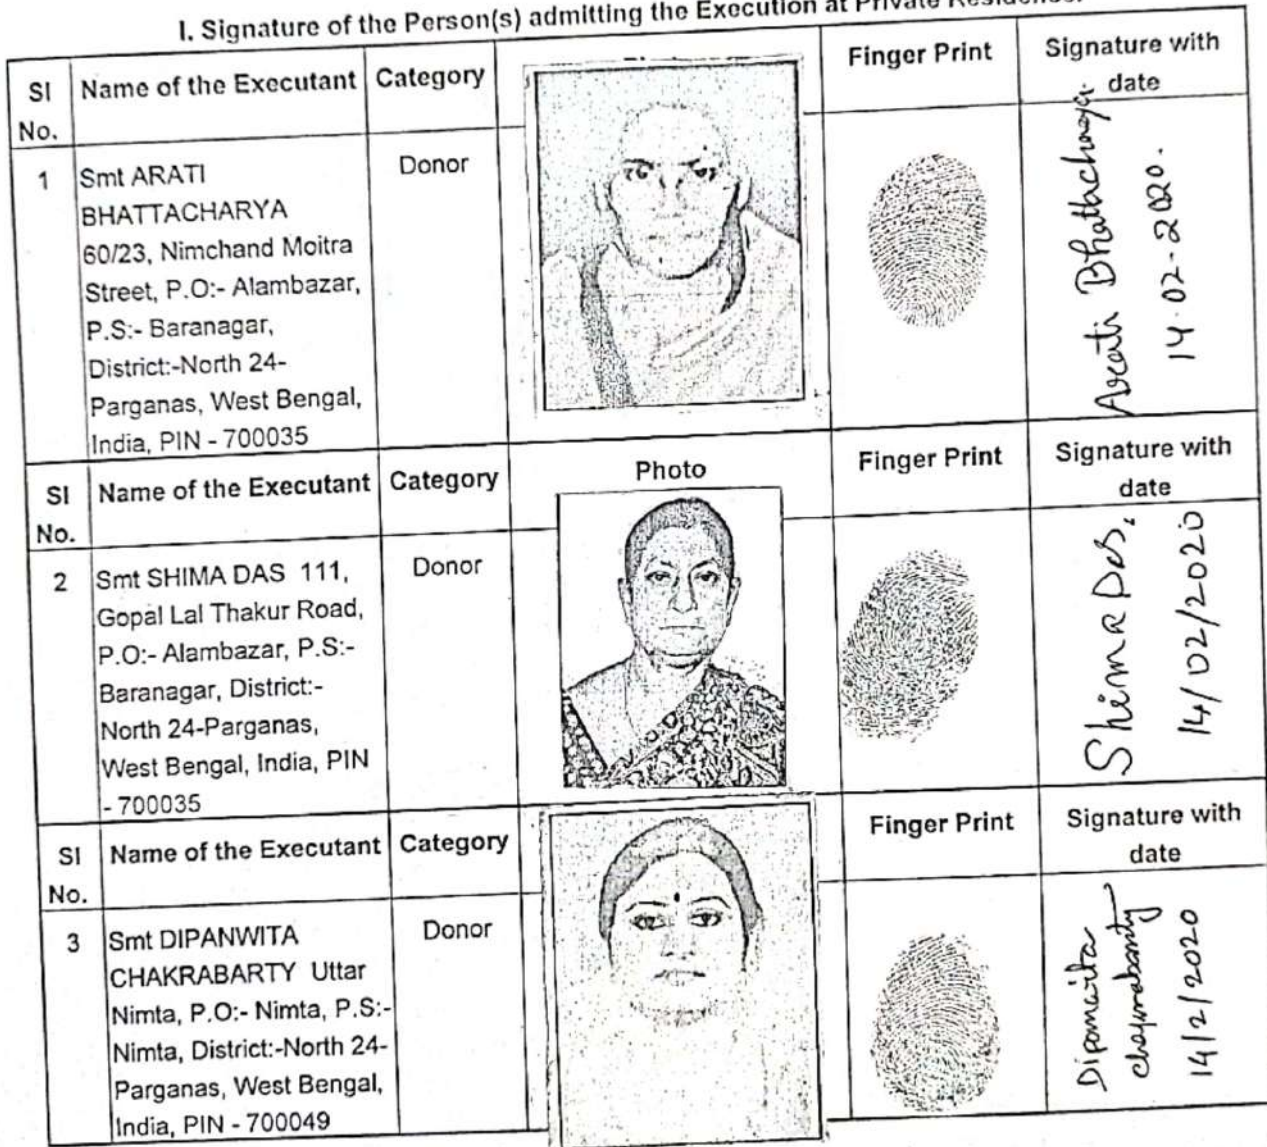 I. Signature of the Person(s) admitting the Execution at Private Residence.
Sl No. Name of the Executant Category Finger Print Signature with date
1 Smt ARATI
BHATTACHARYA
60/23, Nimchand Moitra
Street, P.O:- Alambazar,
P.S:- Baranagar,
District:-North 24-
Parganas, West Bengal,
India, PIN - 700035
Donor
Arati Bhattacharya.
14.02-2020.
Sl No. Name of the Executant Category Photo Finger Print Signature with date
2 Smt SHIMA DAS 111,
Gopal Lal Thakur Road,
P.O:- Alambazar, P.S:-
Baranagar, District:-
North 24-Parganas,
West Bengal, India, PIN
- 700035
Donor
Shima Das,
14/02/2020
Sl No. Name of the Executant Category Finger Print Signature with date
3 Smt DIPANWITA
CHAKRABARTY Uttar
Nimta, P.O:- Nimta, P.S:-
Nimta, District:-North 24-
Parganas, West Bengal,
India, PIN - 700049
Donor
14/2/2020